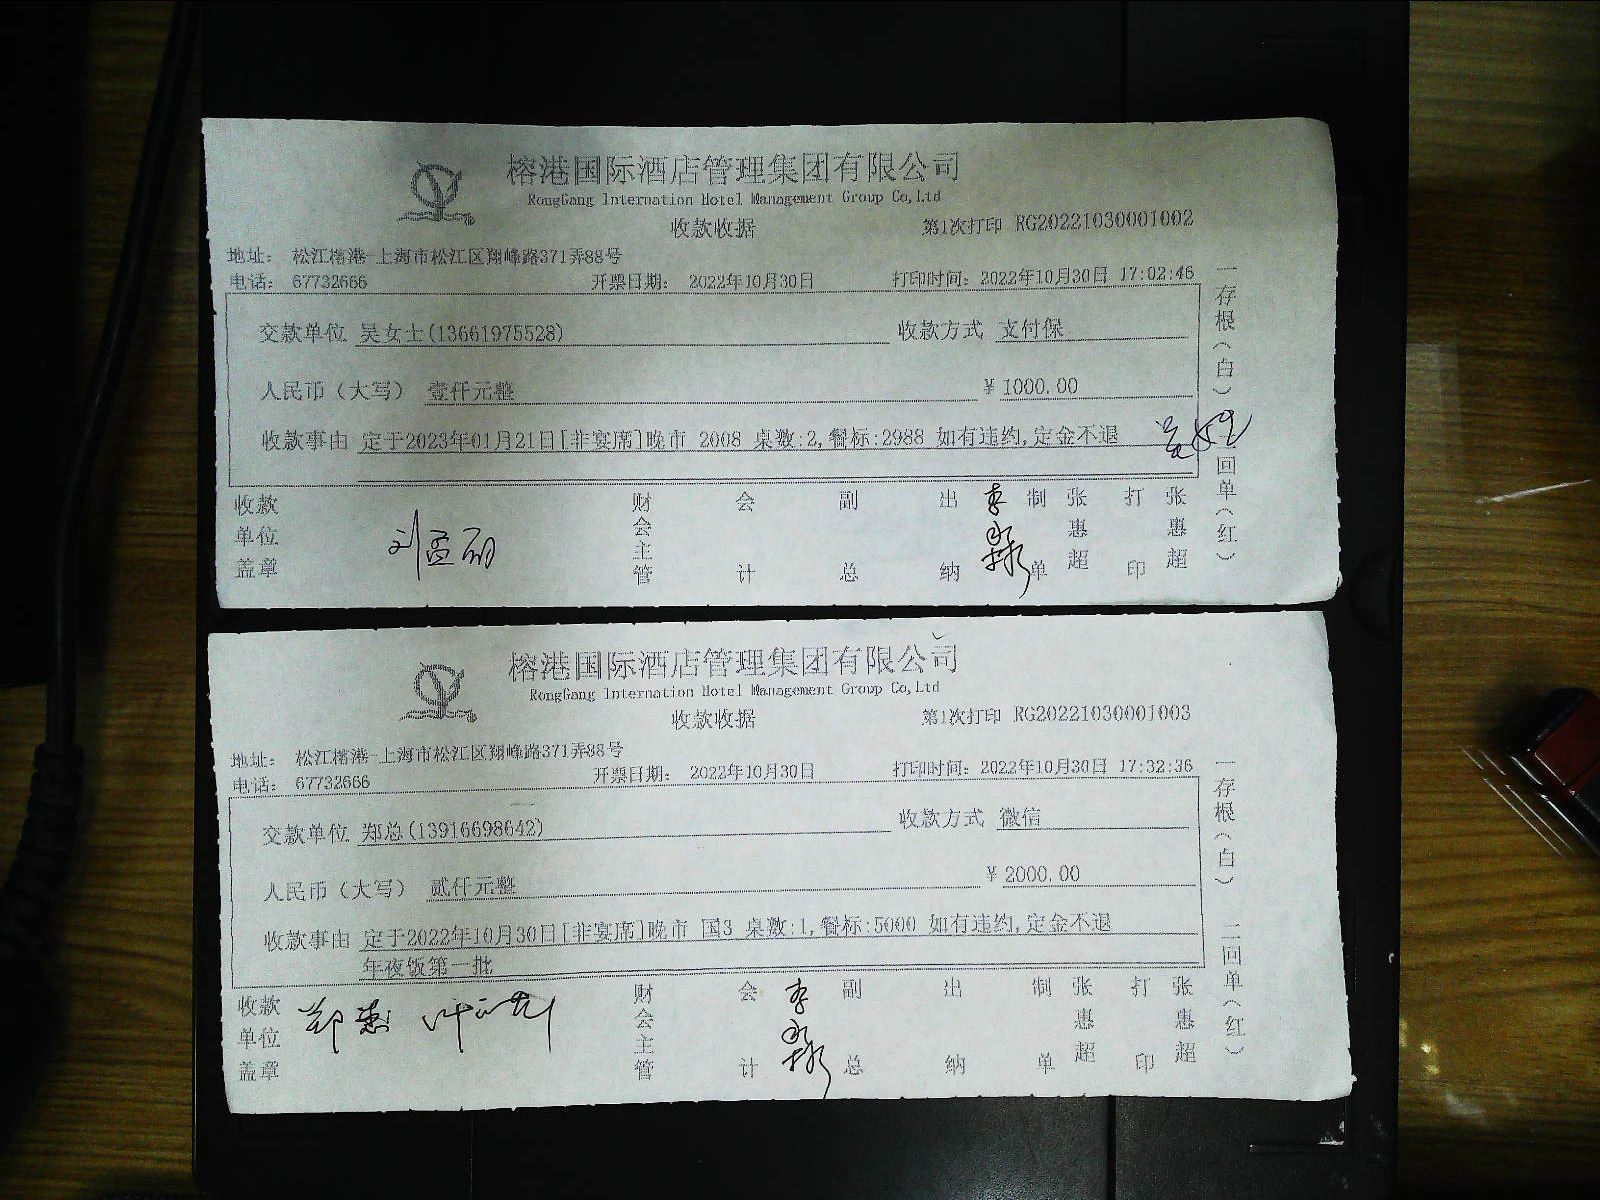 榕港国际酒店管理集团有限公司
RongGang Internation Hotel Management Group Co,Ltd
收款收据 第1次打印 RG20221030001002
地址： 松江榕港-上海市松江区翔峰路371弄88号
电话： 67732666 开票日期： 2022年10月30日 打印时间： 2022年10月30日 17:02:46
交款单位 吴女士(13661975528) 收款方式 支付保
人民币（大写） 壹仟元整 ¥ 1000.00
收款事由 定于2023年01月21日[非宴席]晚市 2008 桌数:2,餐标:2988 如有违约,定金不退
收款单位盖章 财会主管 会计 副总 出纳 制单 张惠超 打印 张惠超
一存根（白） 二回单（红）
榕港国际酒店管理集团有限公司
RongGang Internation Hotel Management Group Co,Ltd
收款收据 第1次打印 RG20221030001003
地址： 松江榕港-上海市松江区翔峰路371弄88号
电话： 67732666 开票日期： 2022年10月30日 打印时间： 2022年10月30日 17:32:36
交款单位 郑总(13916698642) 收款方式 微信
人民币（大写） 贰仟元整 ¥ 2000.00
收款事由 定于2022年10月30日[非宴席]晚市 国3 桌数:1,餐标:5000 如有违约,定金不退
年夜饭第一批
收款单位盖章 财会主管 会计 副总 出纳 制单 张惠超 打印 张惠超
一存根（白） 二回单（红）